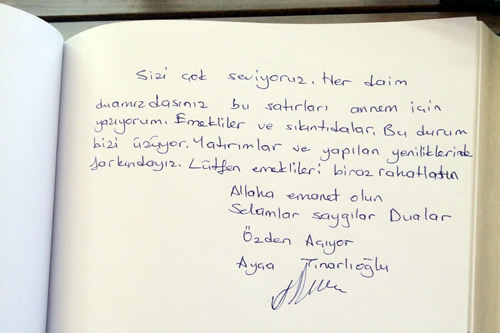 Sizi çok seviyoruz. Her daim
duamızdasınız bu satırları annem için
yazıyorum. Emekliler ve sıkıntıdalar. Bu durum
bizi üzüyor. Yatırımlar ve yapılan yeniliklerinde
farkındayız. Lütfen emeklileri biraz rahatlatın
Allaha emanet olun
Selamlar saygılar Dualar
Özden Açıyor